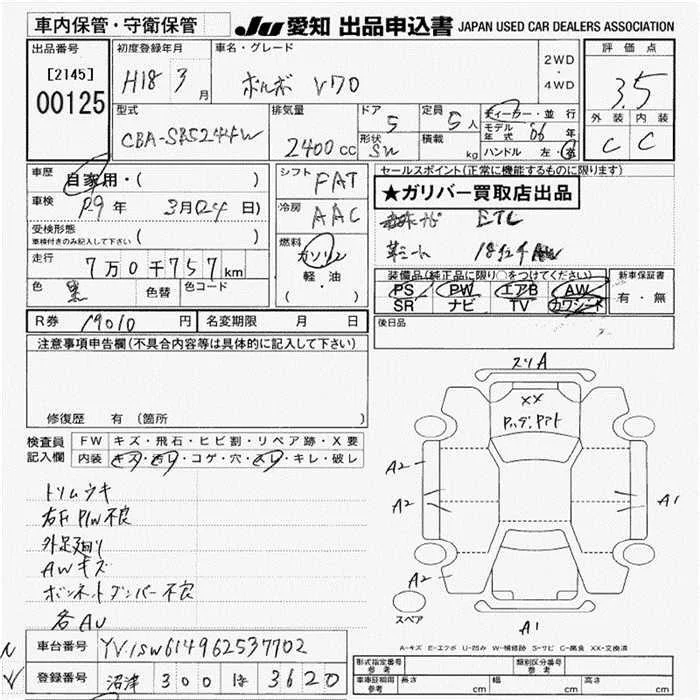 車内保管・守衛保管
JU 愛知 出品申込書 JAPAN USED CAR DEALERS ASSOCIATION
出品番号 [2145] 00125
初度登録年月 H18 3 月
車名・グレード ボルボ V70
2WD ・ 4WD
評価点 3.5
外装 C 内装 C
型式 CBA-SB5244W
排気量 2400 cc
ドア 5 形状 SW
定員 5 人 積載 kg
ディーラー・並行
モデル年式 06 年
ハンドル 左・右
車歴 自家用・( )
車検 P29 年 3月(24 日)
受検形態 車検付きのみ記入して下さい ( )
走行 7万0千757 km
色 黒 色替 色コード
シフト FAT
冷房 AAC
燃料 ガソリン 軽油 ( )
セールスポイント(正常に機能するものに限ります)
★ガリバー買取店出品
ナビ ETC
革シート 18インチAW
装備品(純正品に限り〇をつけてください)
PS PW エアB AW
SR ナビ TV カワシート
新車保証書 有・無
後日品
R券 19010 円 名変期限 月 日
注意事項申告欄(不具合内容等は具体的に記入して下さい)
修復歴 有 (箇所 )
検査員記入欄
FW キズ・飛石・ヒビ割・リペア跡・X要
内装 キズ・汚れ・コゲ・穴・スレ・キレ・破レ
トリムウキ
右F P/W不良
外足廻り
AWキズ
ボンネットダンパー不良
各AU
スリA
XX
A2
A2
A1
A2
スペア
A1
A-キズ E-エクボ U-凹み W-補修跡 S-サビ C-腐食 XX-交換済
車台番号 YV1SW614962537702
登録番号 沼津 300 ほ 3620
型式指定番号 参考 類別区分番号 参考
車庫証明用 参考 長さ cm 幅 cm 高さ cm